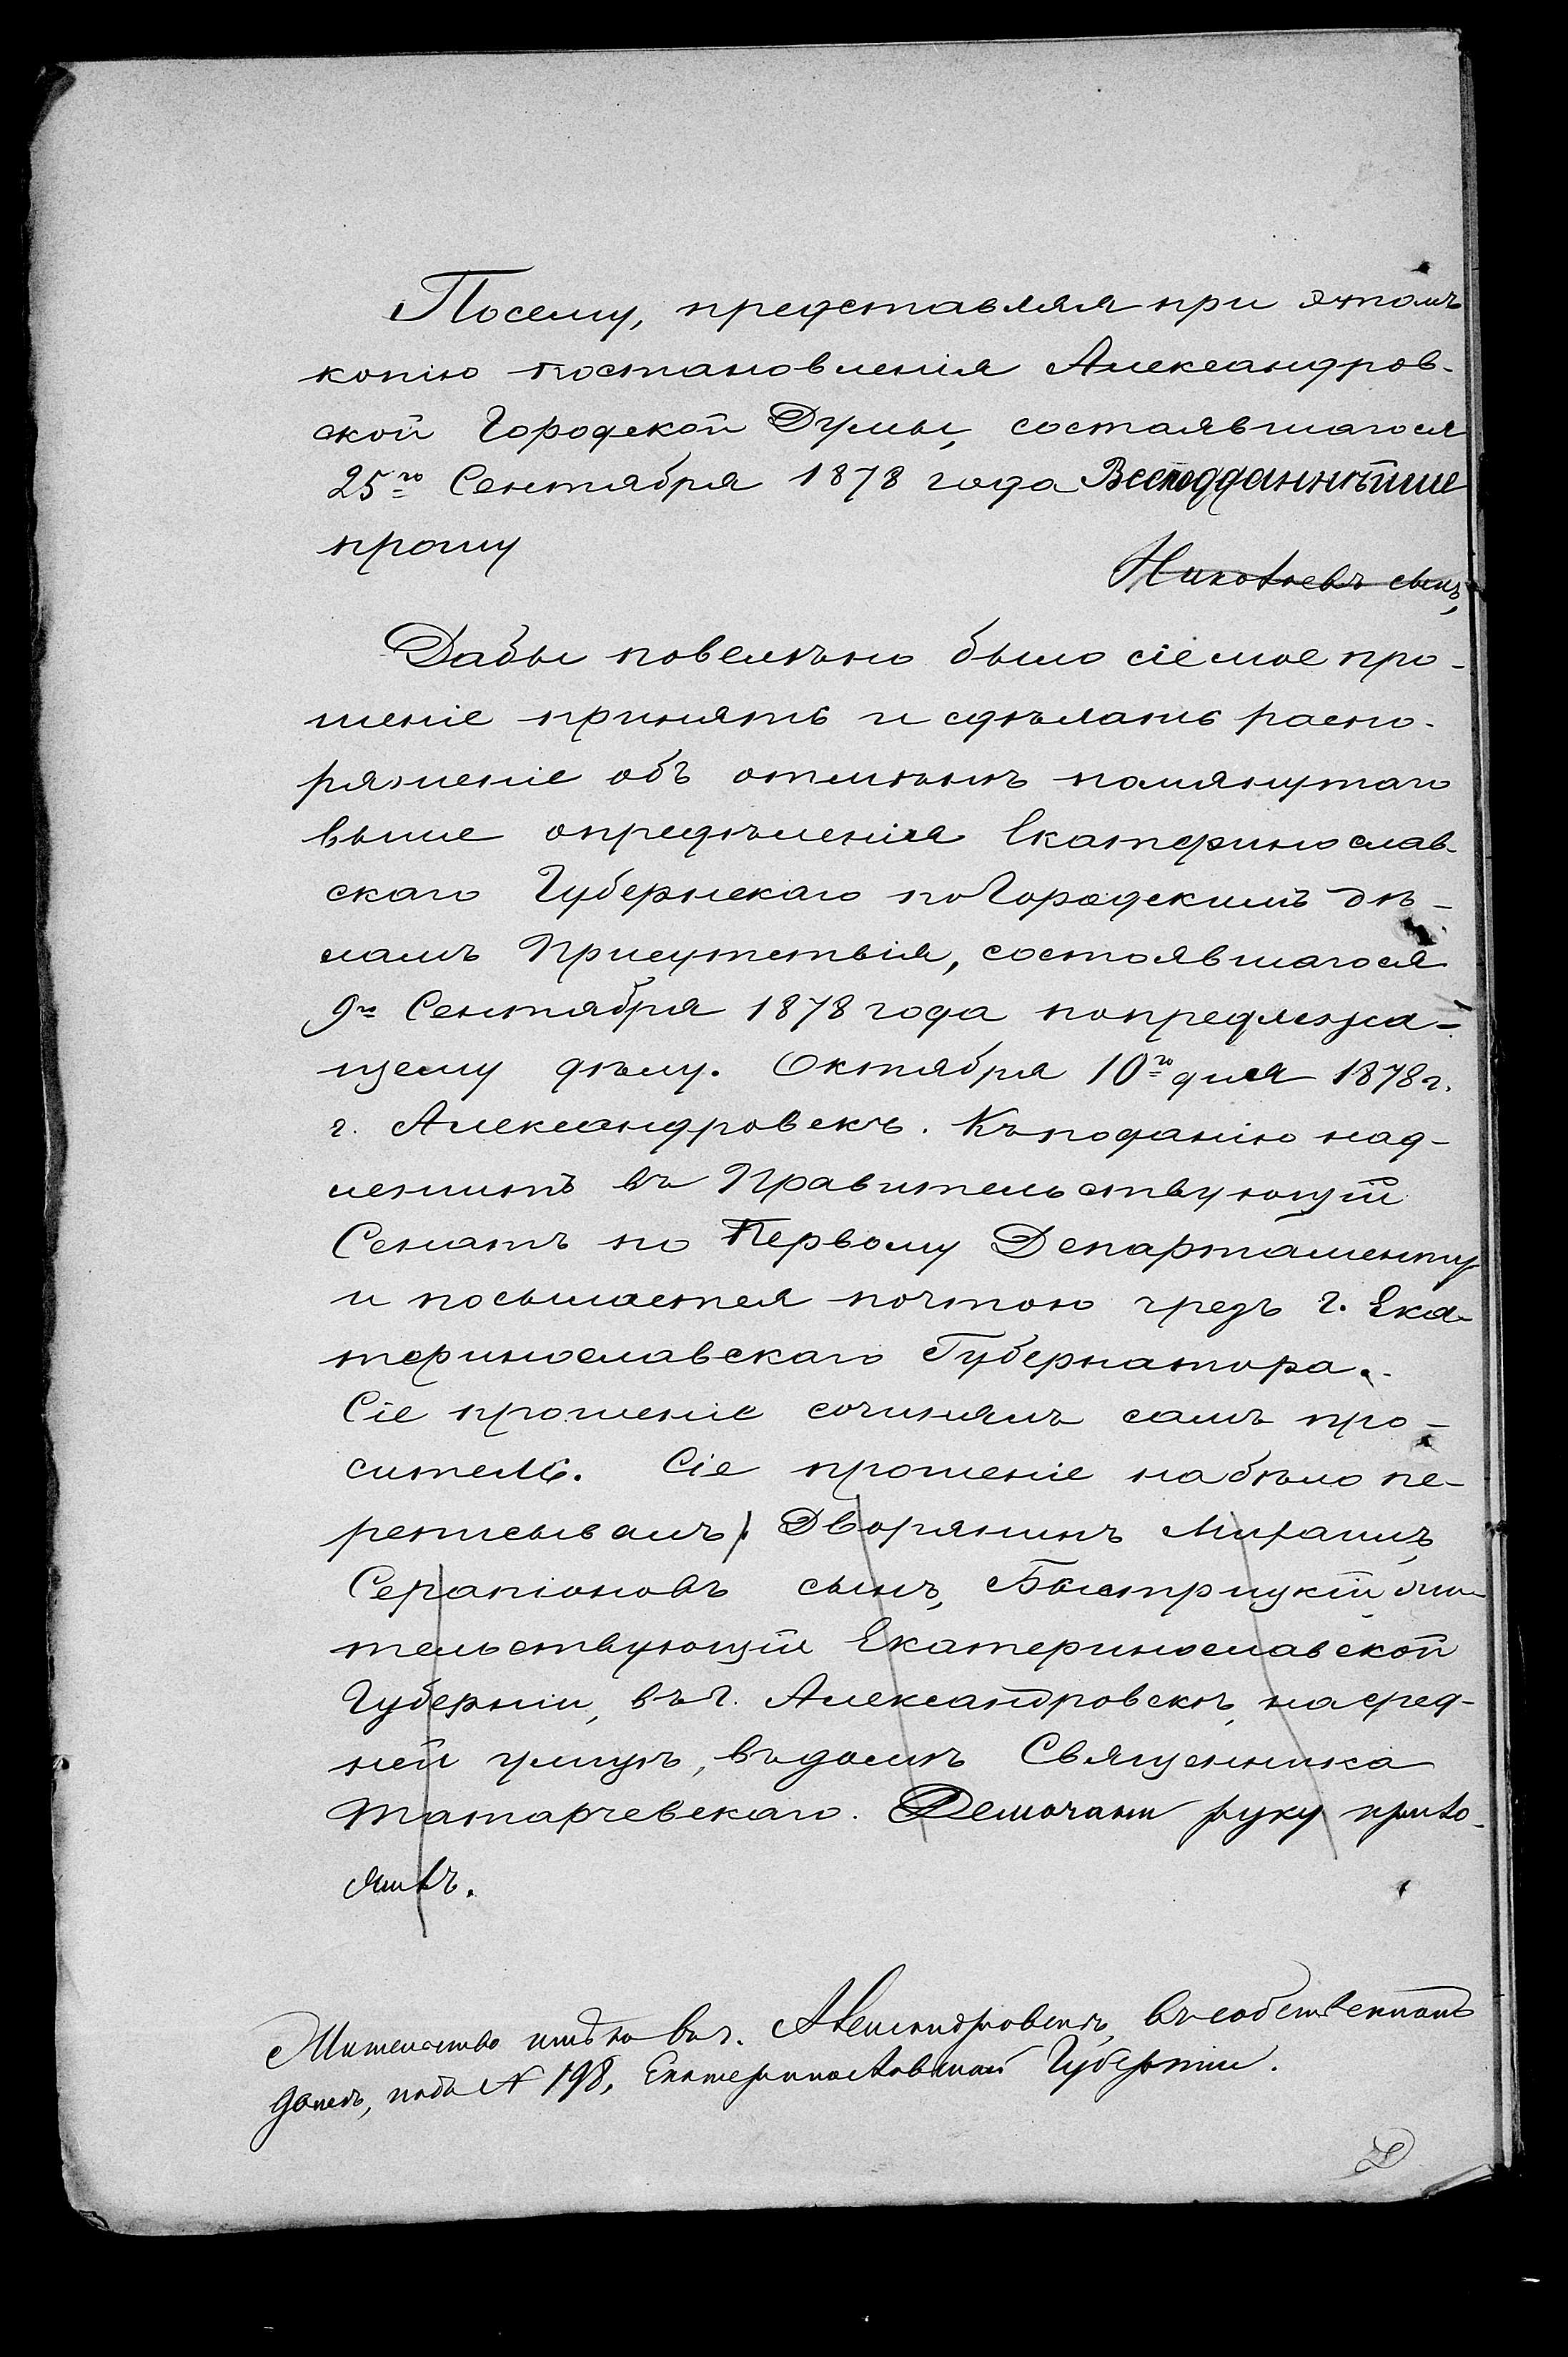 Посему, представляя при этомъ
копію постановленія Александров-
ской Городской Думы, состоявшагося
25го Сентября 1878 года Всеподданнѣйше
прошу
сынъ,
Дабы повелѣно было сіе мое про-
шеніе принять и сдѣлать распо-
ряженіе объ отмѣнѣ помянутаго
выше опредѣленія Екатеринослав-
скаго Губернскаго по Городскимъ дѣ-
ламъ Присутствія, состоявшагося
9го Сентября 1878 года по предлежа-
щему дѣлу. Октября 10го дня 1878 г.
г. Александровскъ. Къ поданію над-
лежитъ въ Правительствующій
Сенатъ по Первому Департаменту
и посылается почтою чрезъ г. Ека-
теринославскаго Губернатора.
Сіе прошеніе сочинялъ самъ про-
ситель. Сіе прошеніе набѣло пе-
реписывалъ Дворянинъ Михаилъ
Серапіоновъ сынъ, Быстрицкій жи-
тельствующій Екатеринославской
Губерніи, въ г. Александровскѣ, на сред-
ней улицѣ, въ домѣ Священника
Татарчевскаго. руку прило-
жилъ.
Жительство имѣю въ г. Александровскѣ, въ собственномъ
домѣ, подъ № 198, Екатеринославской Губерніи.